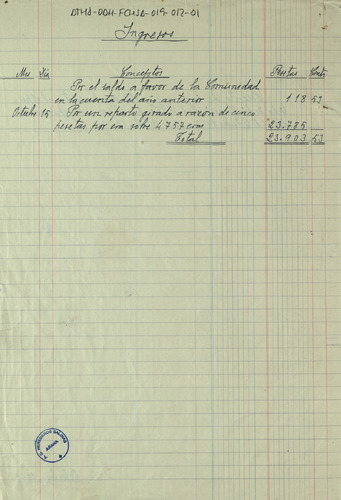 Ingresos
Mes Día Conceptos Pesetas Cents
Por el saldo a favor de la Comunidad
en la cuenta del año anterior 118 53
Octubre 15 Por un reparto girado a razón de cinco
pesetas por era sobre 4757 eras 23.785
Total 23.903 53